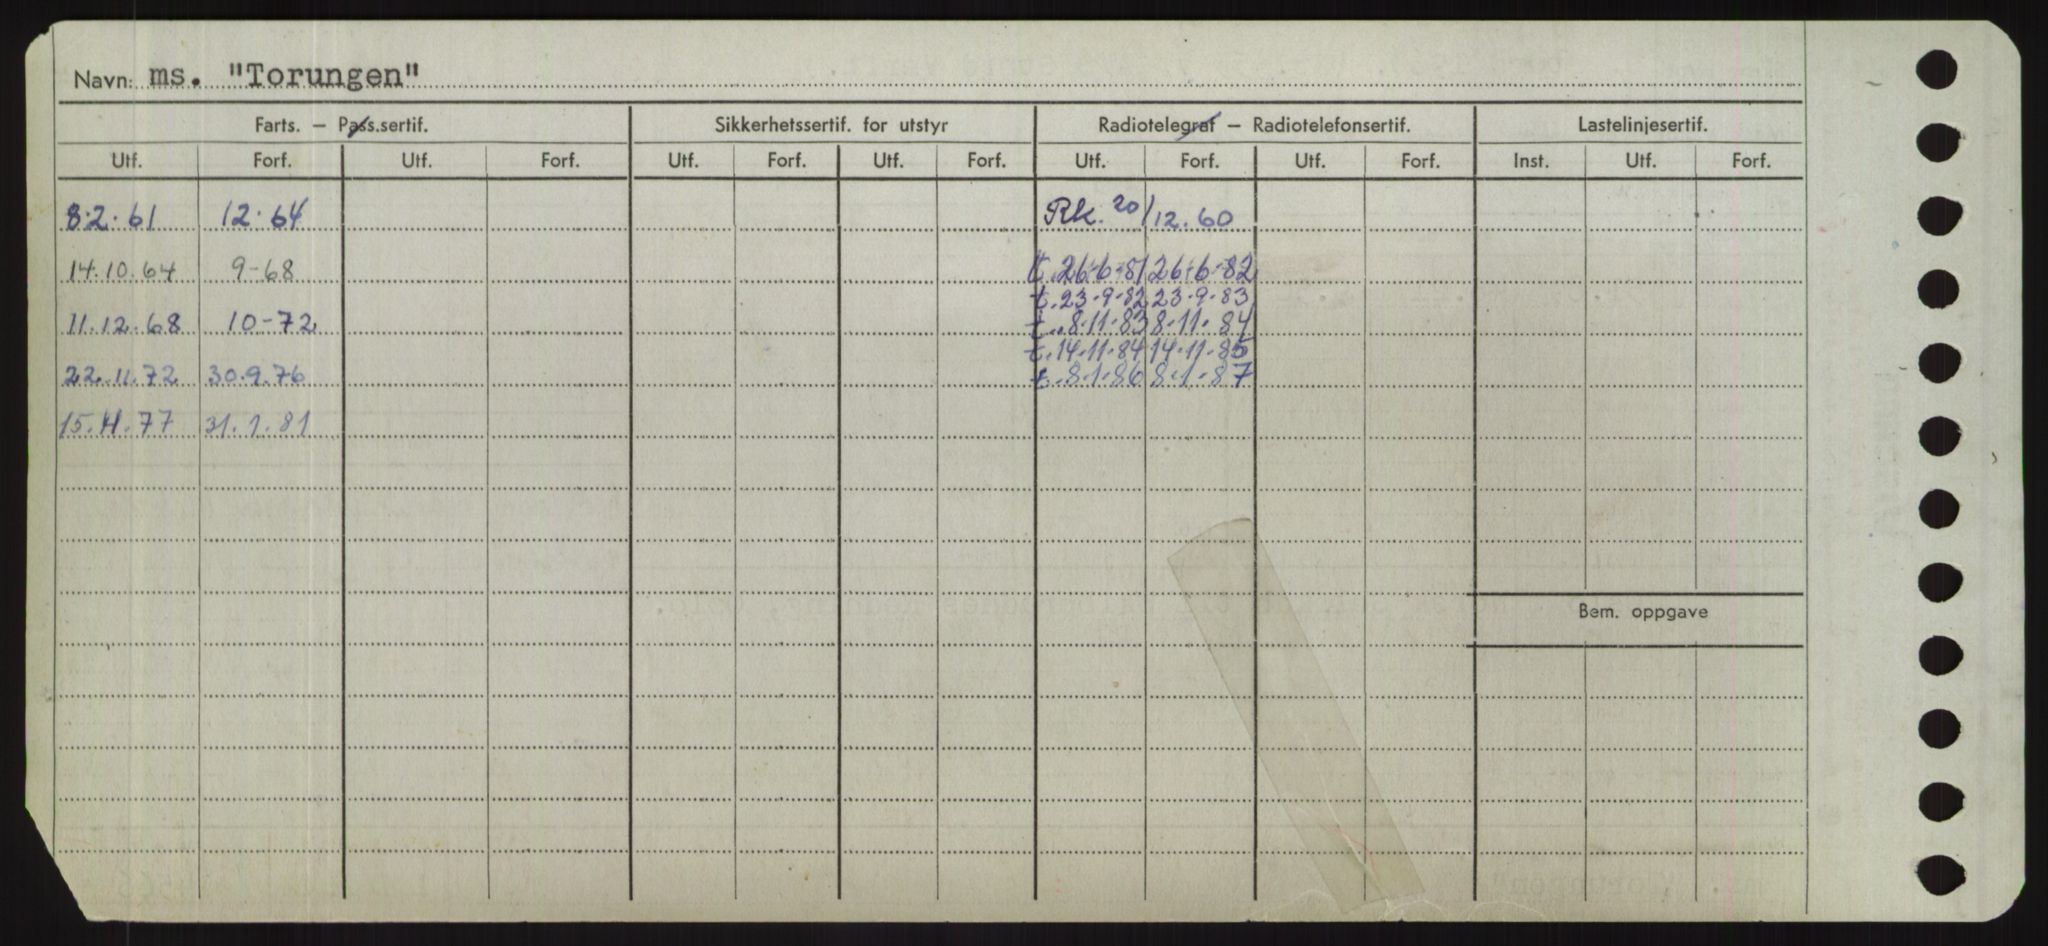 Navn: ms. "Torungen"
Farts. – Pass.sertif. Sikkerhetssertif. for utstyr Radiotelegraf – Radiotelefonsertif. Lastelinjesertif.
Utf. Forf. Utf. Forf. Utf. Forf. Utf. Forf. Utf. Forf. Utf. Forf. Inst. Utf. Forf.
8.2.61 12.64 Rk. 20/12.60
14.10.64 9-68 t. 26-6-81 26-6-82
t. 23-9-82 23-9-83
11.12.68 10-72 t. 8-11-83 8-11-84
t. 14-11-84 14-11-85
22.11.72 30.9.76 t. 8-1-86 8-1-87
15.4.77 31.1.81
Bem. oppgave